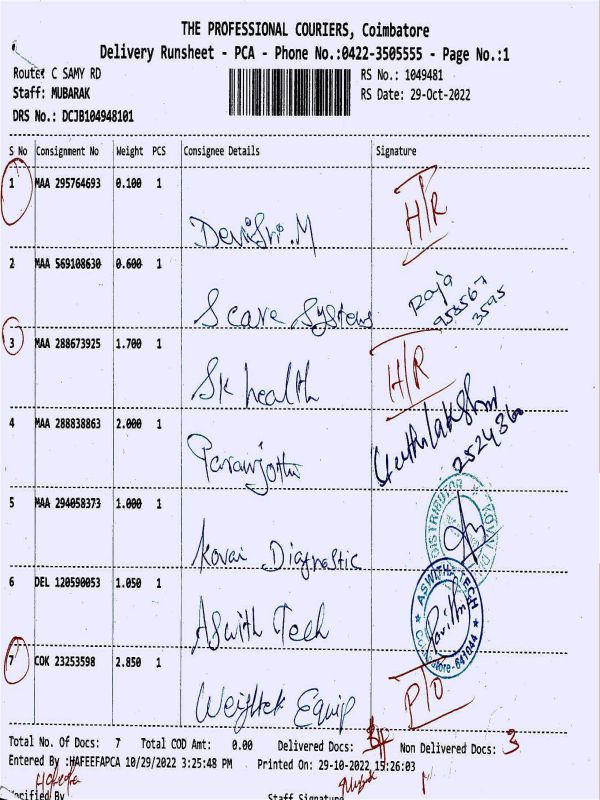 THE PROFESSIONAL COURIERS, Coimbatore
Delivery Runsheet - PCA - Phone No.:0422-3505555 - Page No.:1
Route: C SAMY RD RS No.: 1049481
Staff: MUBARAK RS Date: 29-Oct-2022
DRS No.: DCJB104948101
S No Consignment No Weight PCS Consignee Details Signature
1 MAA 295764693 0.100 1 H/R
Devisri.M
2 MAA 569108630 0.600 1
Scare Systems Raja 958567 3595
3 MAA 288673925 1.700 1 H/R
Sk health
4 MAA 288838863 2.000 1
Paranjothi 2524360
5 MAA 294058373 1.000 1 DISTRIBUTOR
Kovai Diagnostic
6 DEL 120590053 1.050 1 ASWITHA TECH
Aswith Tech -641044
7 COK 23253598 2.850 1 P/O
Weightek Equip
Total No. Of Docs: 7 Total COD Amt: 0.00 Delivered Docs: Non Delivered Docs: 3
Entered By :HAFEEFAPCA 10/29/2022 3:25:48 PM Printed On: 29-10-2022 15:26:03
Verified By Staff Signature